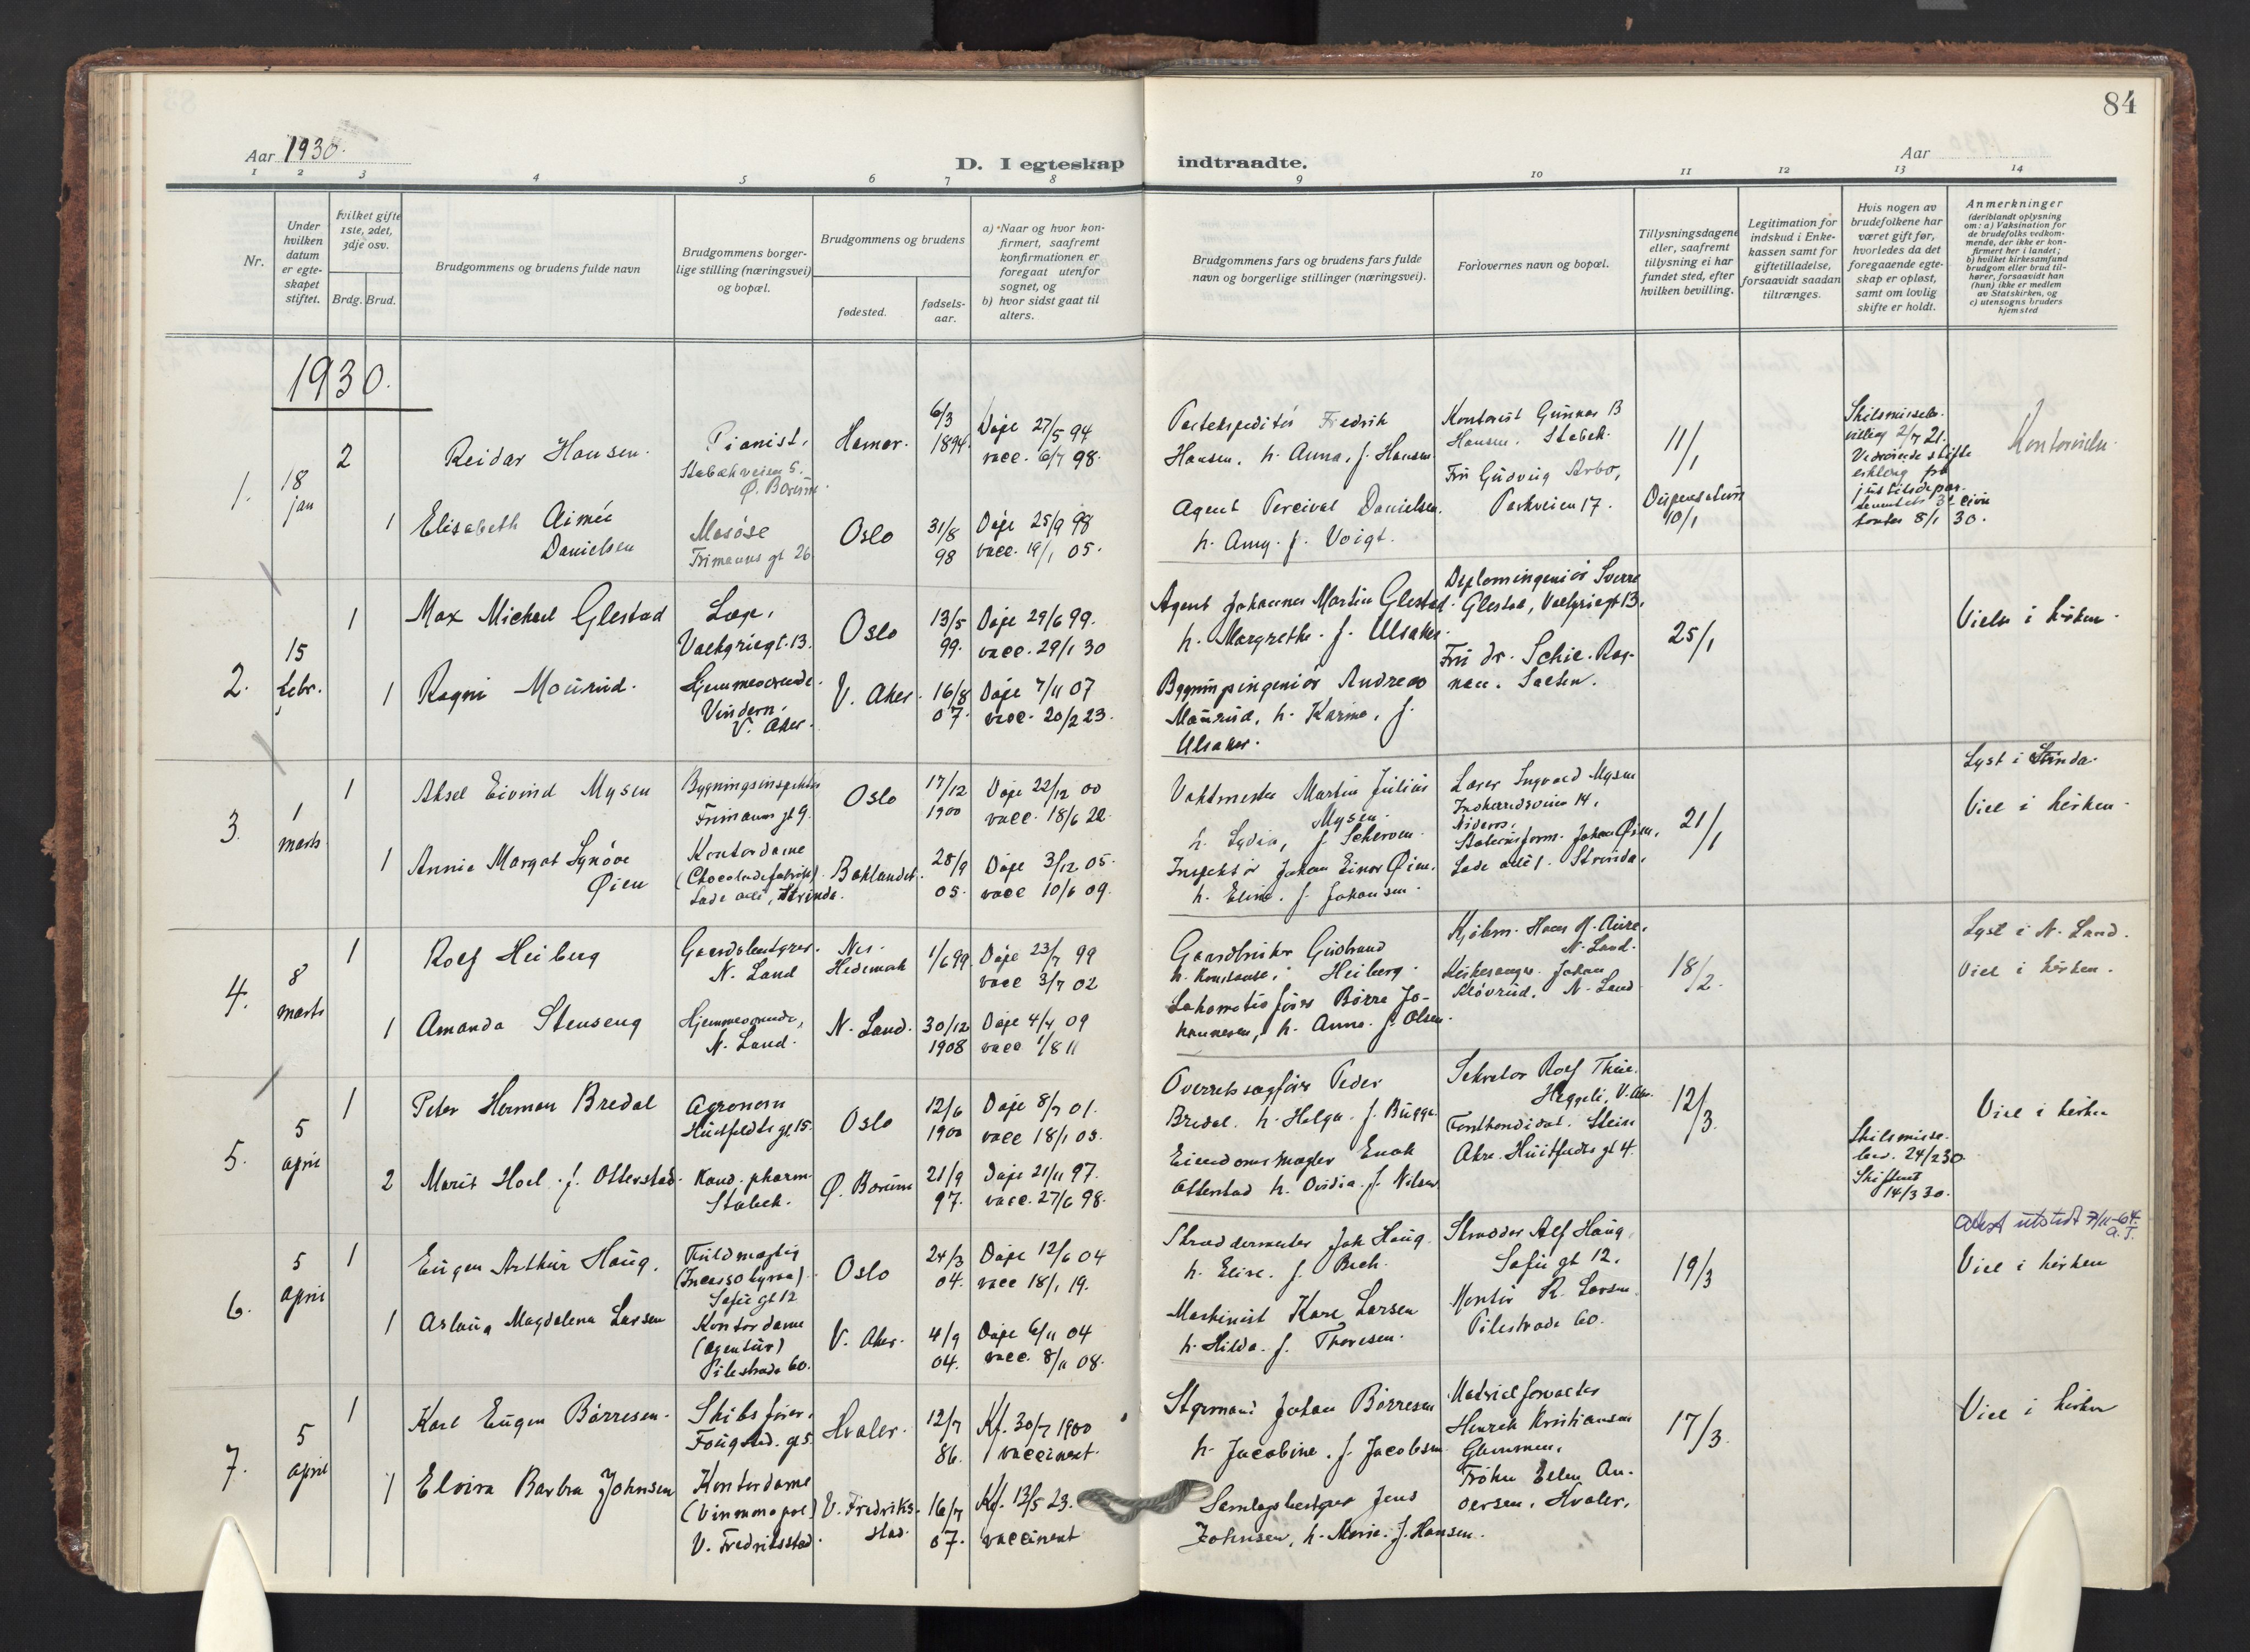 84
Aar 1930.
D. I egteskap indtraadte.
Aar
1 2 3 4 5 6 7 8 9 10 11 12 13 14
Nr.
Under hvilken datum er egte-skapet stiftet.
Hvilket gifte 1ste, 2det, 3dje osv.
Brdg. Brud.
Brudgommens og brudens fulde navn
Brudgommens borger-lige stilling (næringsvei) og bopæl.
Brudgommens og brudens
fødested.
fødsels-aar.
a) Naar og hvor kon-firmert, saafremt konfirmationen er foregaat utenfor sognet, og
b) hvor sidst gaat til alters.
Brudgommens fars og brudens fars fulde navn og borgerlige stillinger (næringsvei).
Forlovernes navn og bopæl.
Tillysningsdagene eller, saafremt tillysning ei har fundet sted, efter hvilken bevilling.
Legitimation for indskud i Enke-kassen samt for giftetilladelse, forsaavidt saadan tiltrænges.
Hvis nogen av brudefolkene har været gift før, hvorledes da det foregaaende egte-skap er opløst, samt om lovlig skifte er holdt.
Anmerkninger
(deriblandt oplysning om: a) Vaksination for de brudefolks vedkom-mende, der ikke er kon-firmert her i landet; b) hvilket kirkesamfund brudgom eller brud til-hører, forsaavidt han (hun) ikke er medlem av Statskirken, og c) utensogns bruders hjemsted
1930.
1.
18
jan
2
Reidar Hansen.
Pianist,
Stabækveien 5.
Ø. Bærum.
Hamar.
6/3
1894.
Døpt 27/5 94
vacc. 6/7 98.
Fredrik
Hansen. h. Anna, f. Hansen
Kontorist Gunnar B
Hansen. Stabek.
Fru Gudveig Arbo,
Parkveien 17.
11/1
Dispensation
10/1
Skilsmisseb.
2/7 21.
8/1 30.
1
Elisabeth Aimée
Danielsen
Masøse
Frimanns gt 26
Oslo
31/8
98
Døpt 25/9 98
vacc. 19/1 05.
Agent Percival Danielsen.
h. Amy. f. Voigt.
2.
15
febr.
1
Max Michael Glestad
Læge,
13.
Oslo
13/5
99.
Døpt 29/6 99.
vacc. 29/1 30
Agent Johannes Martin Glestad.
h. Margrethe. f. Ulsaker.
Diplomingeniør Sverre
Glestad, 13.
Fru dr. Schie.
25/1
Vielse i kirken.
1
Ragni Maurud.
Hjemmeværende.
Vindern.
V. Aker.
V. Aker.
16/8
07.
Døpt 7/11 07
vacc. 20/2 23.
Bygningsingeniør Andreas
Maurud, h. Karine, f.
Ulsaker.
3.
1
marts
1
Aksel Eivind Mysen
Bygningsinspektør
Frimanns gt 9.
Oslo
17/12
1900
Døpt 22/12 00
vacc. 18/6 22.
Vaktmester Martin Julius
Mysen.
h. Lydia, f. Scherven.
Lærer Ingvald Mysen
Innherredsveien 14,
Nidaros,
Johan Øien,
Lade allé 1. Strinda.
21/1
Lyst i Strinda.
Viet i kirken.
1
Annie Margot Synøve
Øien
Kontordame
(Chocoladefabrik).
Lade allé, Strinda.
Baklandet.
28/9
05.
Døpt 3/12 05.
vacc 10/6 09.
Inspektør Johan Einar Øien.
h. Eline. f. Johansen.
4.
8
marts
1
Rolf Heiberg
Gaardsbestyrer.
N. Land
Nes.
Hedemark
1/6 99.
Døpt 23/7 99
vacc 3/7 02
Gaardbruker Gudbrand
h. Konstanse, Heiberg.
Kjøbm. Hans
N. Land.
Kirkesanger. Johan
Kløvrud. N. Land
18/2.
Lyst i N. Land.
Viet i kirken.
1
Amanda Stenseng
Hjemmeværende,
N. Land.
N. Land.
30/12
1908
Døpt 4/4 09
vacc 1/8 11
Lokomotivfører Børre Jo-
hannesen, h. Anna. f. Olsen.
5.
5
april
1
Peter Herman Bredal
Agronom
Huitfeldts gt. 15.
Oslo
12/6
1900
Døpt 8/7 01.
vacc 18/1 03.
Overretssagfører Peder
Bredal. h. Helga. f. Bugge
Sekretær Rolf Thue.
Heggeli, V. Aker.
Forstkandidat. Stein
Akre. Huitfeldts gt 4.
12/3.
Skilsmisse-
bev. 24/2 30
Skiftet
14/3 30.
Viet i kirken
2
Marit Hoel. f. Otterstad.
Kand. pharm.
Stabek.
Ø. Bærum
21/9
97.
Døpt 21/11 97.
vacc. 27/6 98.
Eiendomsmægler Enok
Otterstad h. Ovidia. f. Nilsen
6.
5
april
1
Eugen Arthur Haug.
Fuldmægtig
(Incassobyraa).
Sofie gt 12
Oslo
24/3
04.
Døpt 12/6 04
vacc 18/1 19.
Skræddermester Joh Haug
h. Elise. f. Bech.
Skrædder Alf Haug,
Sofie gt 12.
Montør R. Larsen
Pilestræde 60.
19/3
Attest utstedt 7/11-64.
Viet i kirken
1
Aslaug Magdalena Larsen
Kontordame
(agentur)
Pilestræde 60.
V. Aker.
4/9
04.
Døpt 6/11 04
vacc. 8/11 08.
Maskinist Kare Larsen
h. Hilda. f. Thoresen.
7.
5
april
1
Karl Eugen Børresen.
Skibsfører.
Fougstad. gt 5.
Hvaler.
12/7
86.
Kf. 30/7 1900
vaccinert.
Styrmand Johan Børresen
h. Jacobine. f. Jacobsen
Materialforvalter
Henrik Kristiansen
Glemmen,
Frøken Ellen An-
dersen, Hvaler,
17/3.
Viet i kirken
1
Elvira Barbra Johnsen
Kontordame
(Vinmonopol)
V. Fredriksstad.
V. Fredriks-
stad.
16/7
07.
Kf. 13/5 23.
vaccinert
Samlagsbestyrer Jens
Johnsen, h. Marie. f. Hansen.